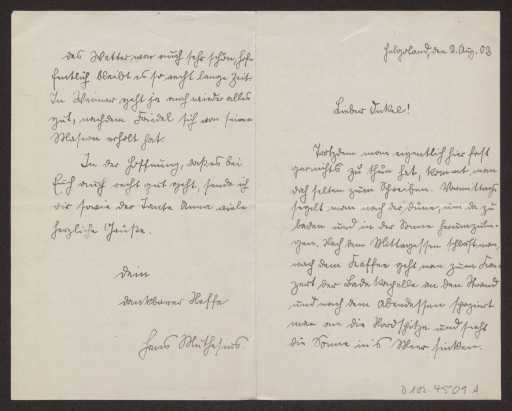 Helgoland, den 2. Aug. 03
Lieber Onkel!
Trotzdem man eigentlich hier fast
garnichts zu thun hat, kommt man
doch selten zum Schreiben. Vormittags
segelt man nach der Düne, um da zu
baden und in der Sonne herumzulie-
gen. Nach dem Mittagessen schläft man,
nach dem Kaffee geht man zum Kon-
zert der Badekapelle an den Strand
und nach dem Abendessen spaziert
man an die Nordspitze und sieht
die Sonne in's Meer sinken.
Das Wetter war auch sehr schön, hof-
fentlich bleibt es so recht lange Zeit.
In Weimar geht ja auch wieder alles
gut, nachdem Friedel sich von seinen
Masern erholt hat.
In der Hoffnung, daß es bei
Euch auch recht gut geht, sende ich
dir sowie der Tante Anna viele
herzliche Grüße.
Dein
dankbarer Neffe
Hans Muthesius
D 102-4509 A